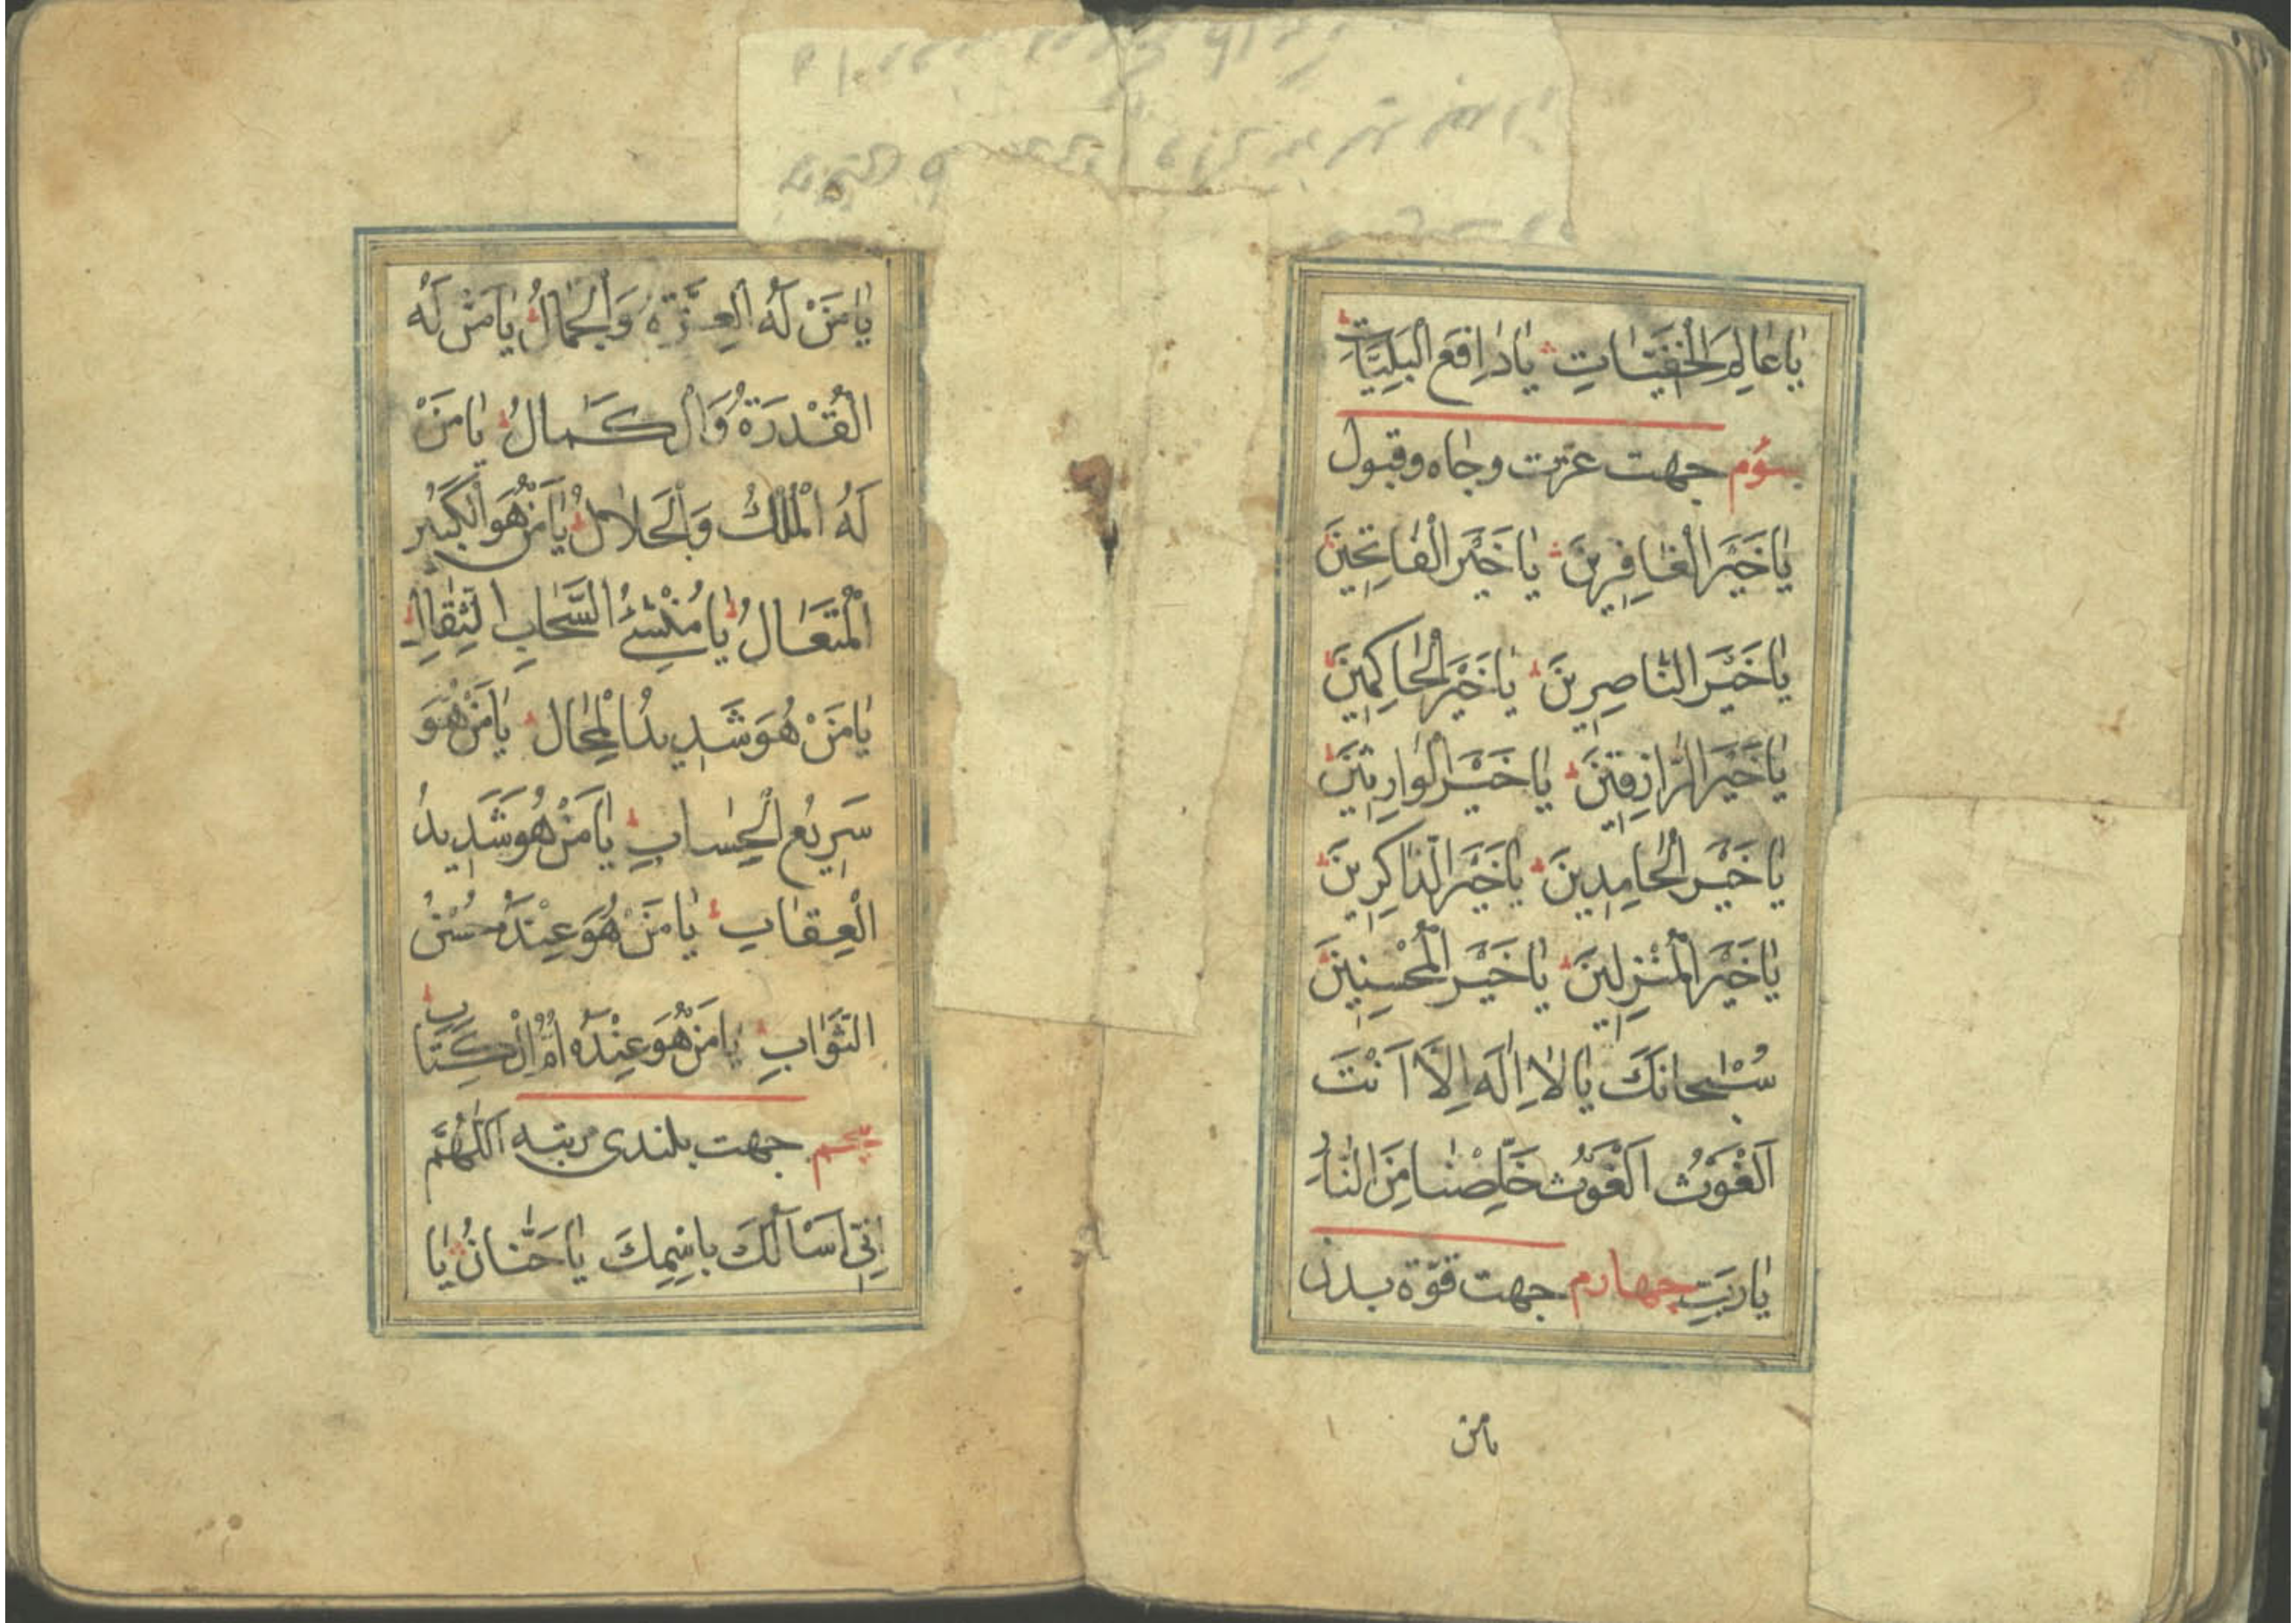 يَا عَالِمَ الْخَفِيَّاتِ يَا دَافِعَ الْبَلِيَّاتِ
سوم جهت عزت وجاه وقبول
يَا خَيْرَ الْغَافِرِينَ يَا خَيْرَ الْفَاتِحِينَ
يَا خَيْرَ النَّاصِرِينَ يَا خَيْرَ الْحَاكِمِينَ
يَا خَيْرَ الرَّازِقِينَ يَا خَيْرَ الْوَارِثِينَ
يَا خَيْرَ الْحَامِدِينَ يَا خَيْرَ الذَّاكِرِينَ
يَا خَيْرَ الْمُنْزِلِينَ يَا خَيْرَ الْمُحْسِنِينَ
سُبْحَانَكَ يَا لَا اِلَهَ اِلَّا اَنْتَ
اَلْغَوْثُ اَلْغَوْثُ خَلِّصْنَا مِنَ النَّارِ
يَا رَبِّ چهارم جهت قوّة بدن
يامن
يَا مَنْ لَهُ الْعِزَّةُ وَالْجَمَالُ يَا مَنْ لَهُ
الْقُدْرَةُ وَالْكَمَالُ يَا مَنْ
لَهُ الْمُلْكُ وَالْجَلَالُ يَا مَنْ هُوَ الْكَبِيرُ
الْمُتَعَالُ يَا مُنْشِئَ السَّحَابِ الثِّقَالِ
يَا مَنْ هُوَ شَدِيدُ الْمِحَالِ يَا مَنْ هُوَ
سَرِيعُ الْحِسَابِ يَا مَنْ هُوَ شَدِيدُ
الْعِقَابِ يَا مَنْ هُوَ عِنْدَهُ حُسْنُ
الثَّوَابِ يَا مَنْ هُوَ عِنْدَهُ اُمُّ الْكِتَابِ
پنجم جهت بلندی رتبه اَللّهُمَّ
اِنِّي اَسْاَلُكَ بِاسْمِكَ يَا حَنَّانُ يَا